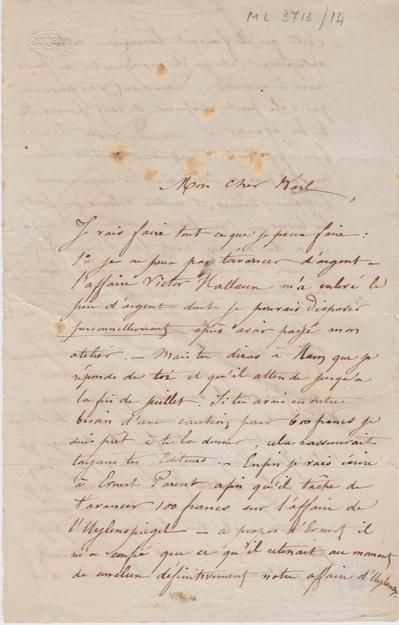 ML 3713/14
Mon cher Karl,
Je vais faire tout ce que je peux faire :
1° je ne peux pas t'avancer d'argent -
l'affaire Victor Hallaux m'a enlevé le
peu d'argent dont je pouvais disposer
personnellement après avoir payé mon
atelier. - Mais tu diras à que je
réponds de toi et qu'il attende jusqu'à
la fin de juillet. Si tu avais en outre
besoin d'une caution pour 600 francs je
suis prêt à te la donner, cela rassurerait
toujours tes Editeurs. - Enfin je vais écrire
à Ernest Parent afin qu'il tâche de
t'avancer 100 francs sur l'affaire de
l'Uylenspiegel - à propos d'Ernest il
m'a confié que ce qu'il retenait au moment
de conclure définitivement notre affaire d'